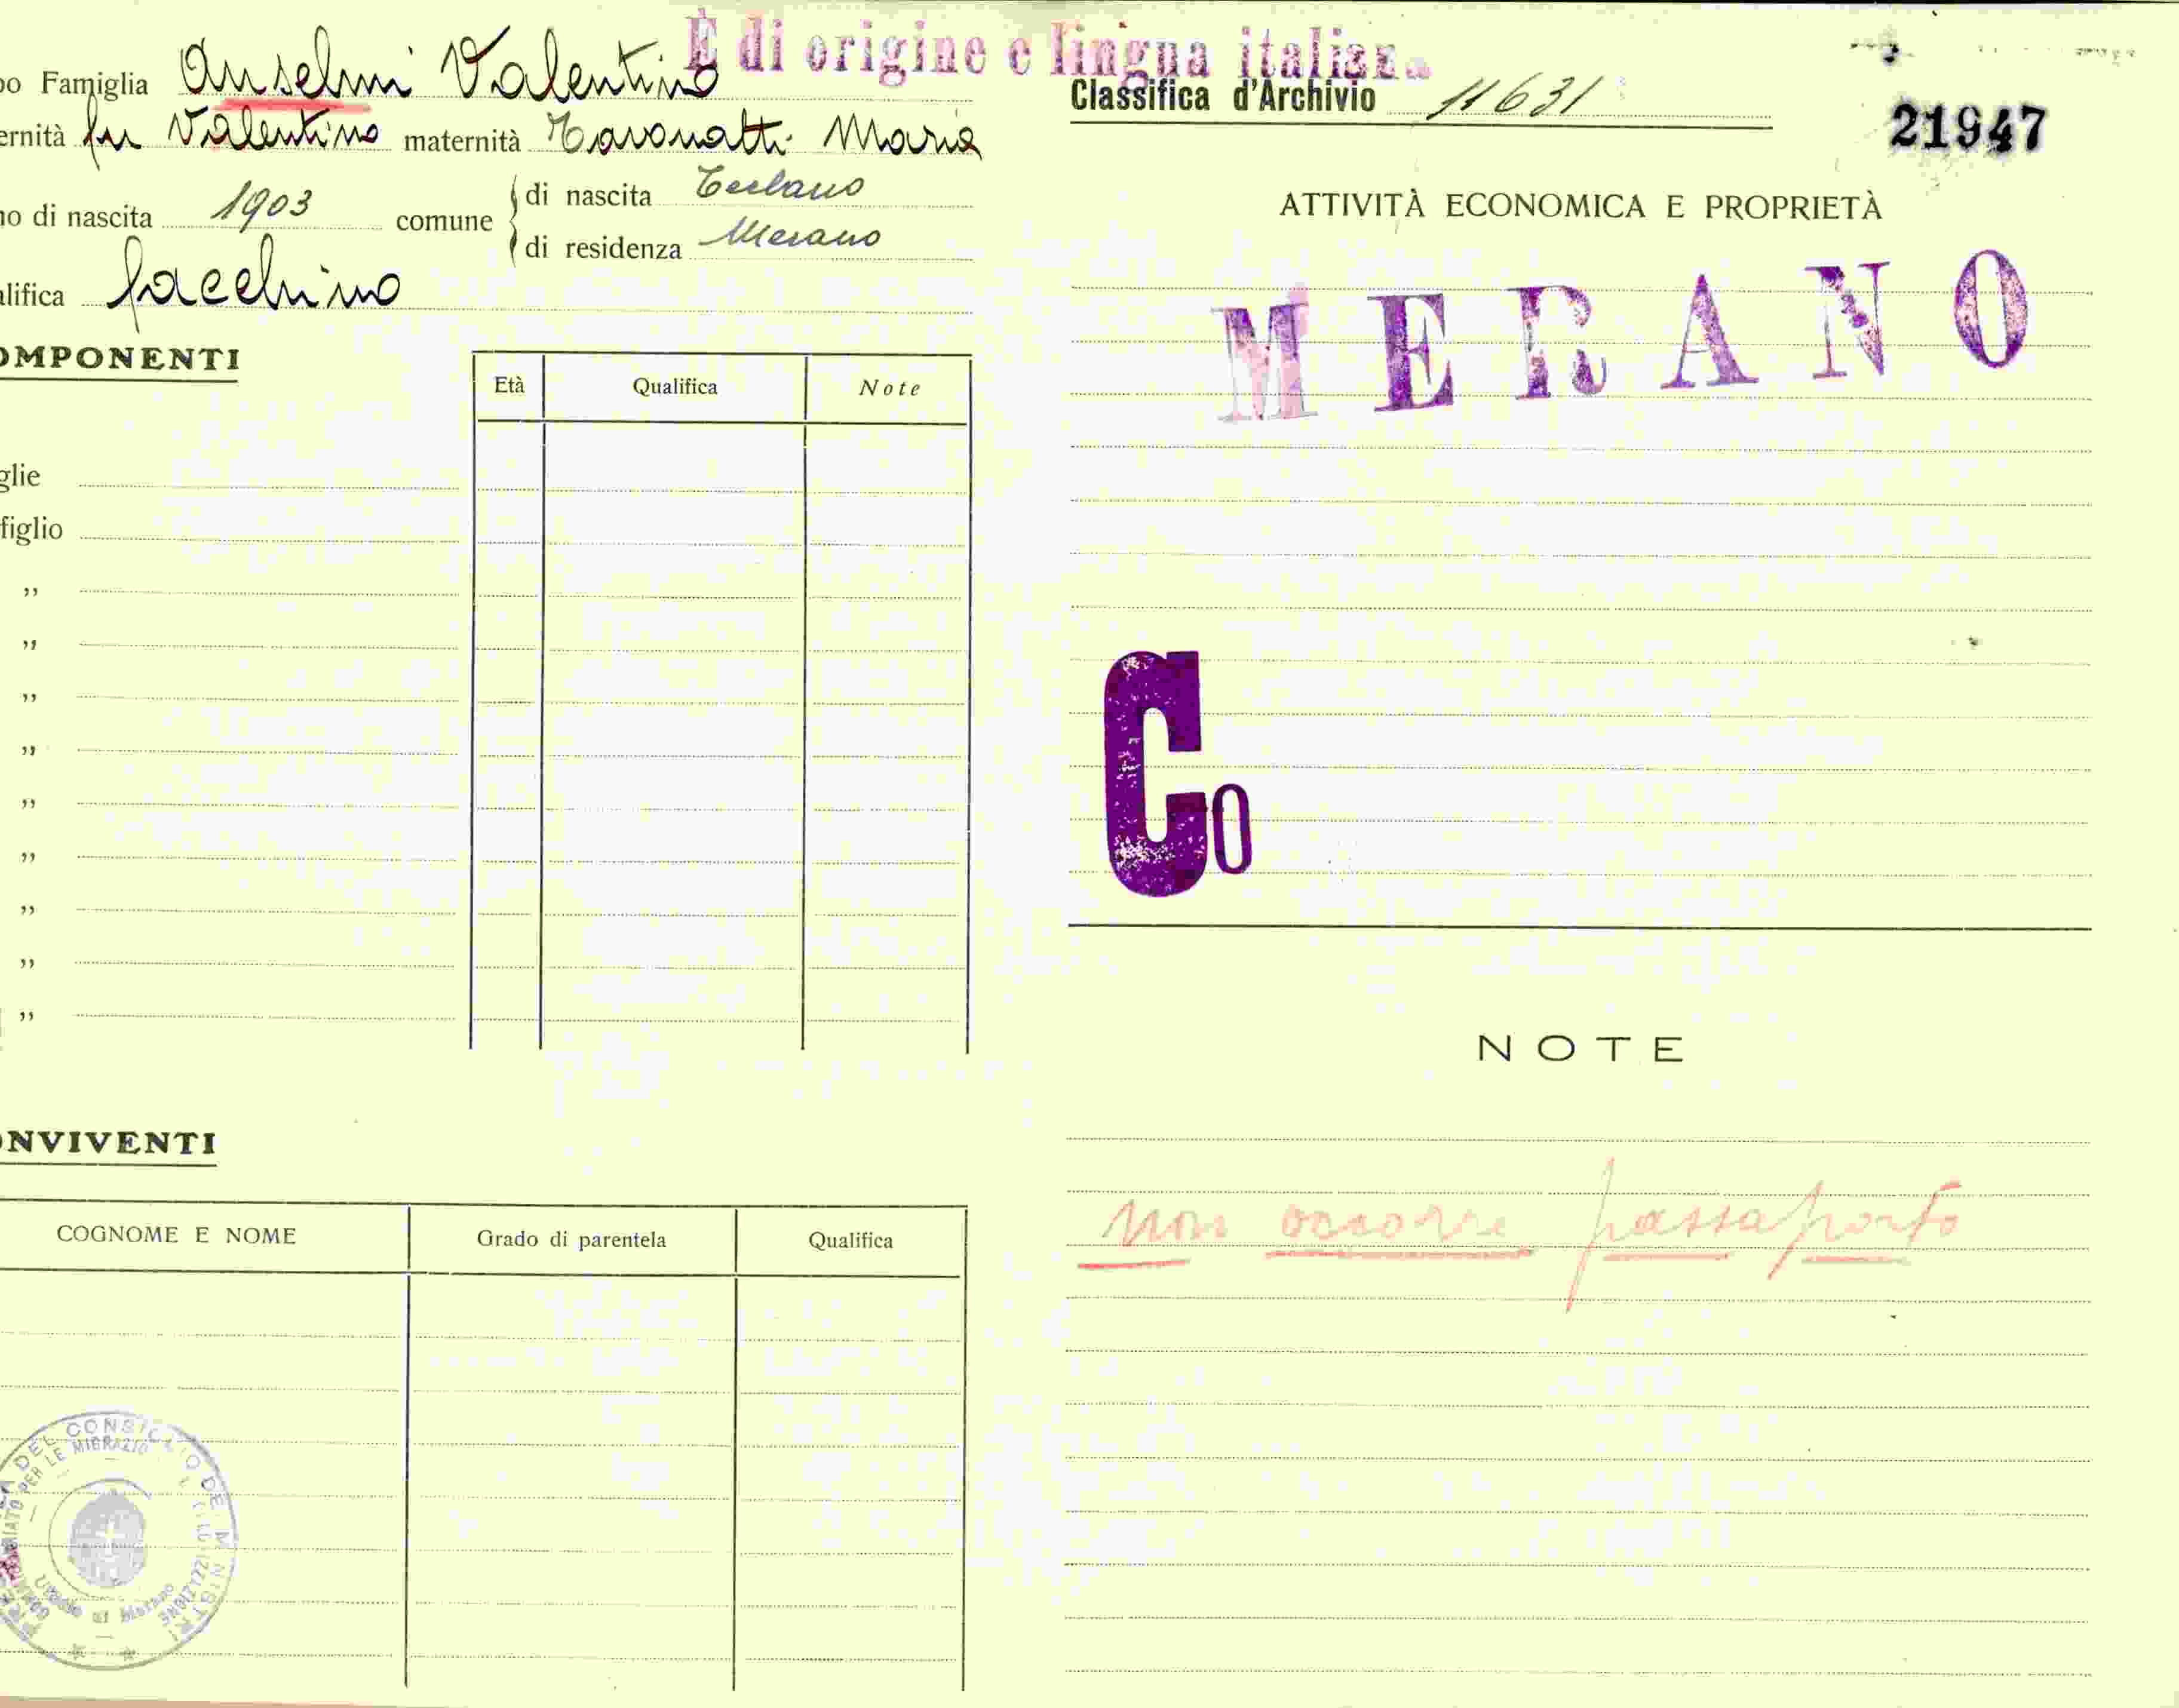 È di origine e lingua italiana
po Famiglia Anselmi Valentino
ernità fu Valentino maternità Tavonatti Maria
no di nascita 1903 comune di nascita Terlano
di residenza Merano
alifica facchino
OMPONENTI
Età Qualifica Note
glie
figlio
"
"
"
"
"
"
"
"
"
ONVIVENTI
COGNOME E NOME Grado di parentela Qualifica
DEL CONSIGLIO DEI MINISTRI
PER LE MIGRAZIO
Ufficio di Merano
Classifica d'Archivio 11631
21947
ATTIVITÀ ECONOMICA E PROPRIETÀ
MERANO
Co
NOTE
non occorre passaporto